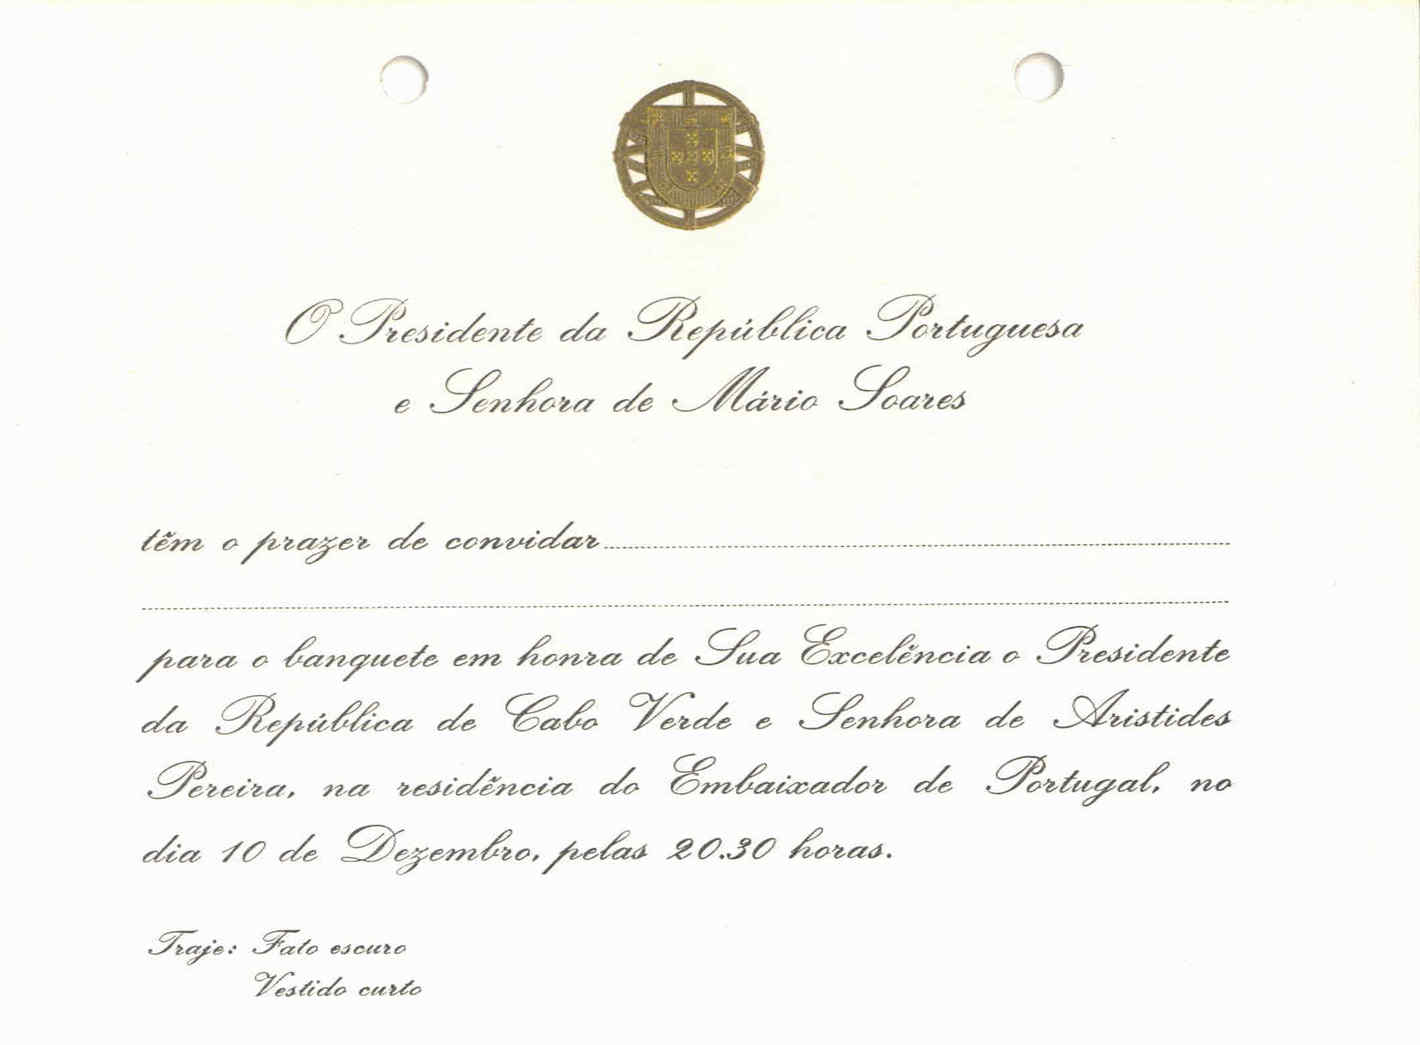 O Presidente da República Portuguesa
e Senhora de Mário Soares
têm o prazer de convidar
para o banquete em honra de Sua Excelência o Presidente
da República de Cabo Verde e Senhora de Aristides
Pereira, na residência do Embaixador de Portugal, no
dia 10 de Dezembro, pelas 20.30 horas.
Traje: Fato escuro
Vestido curto